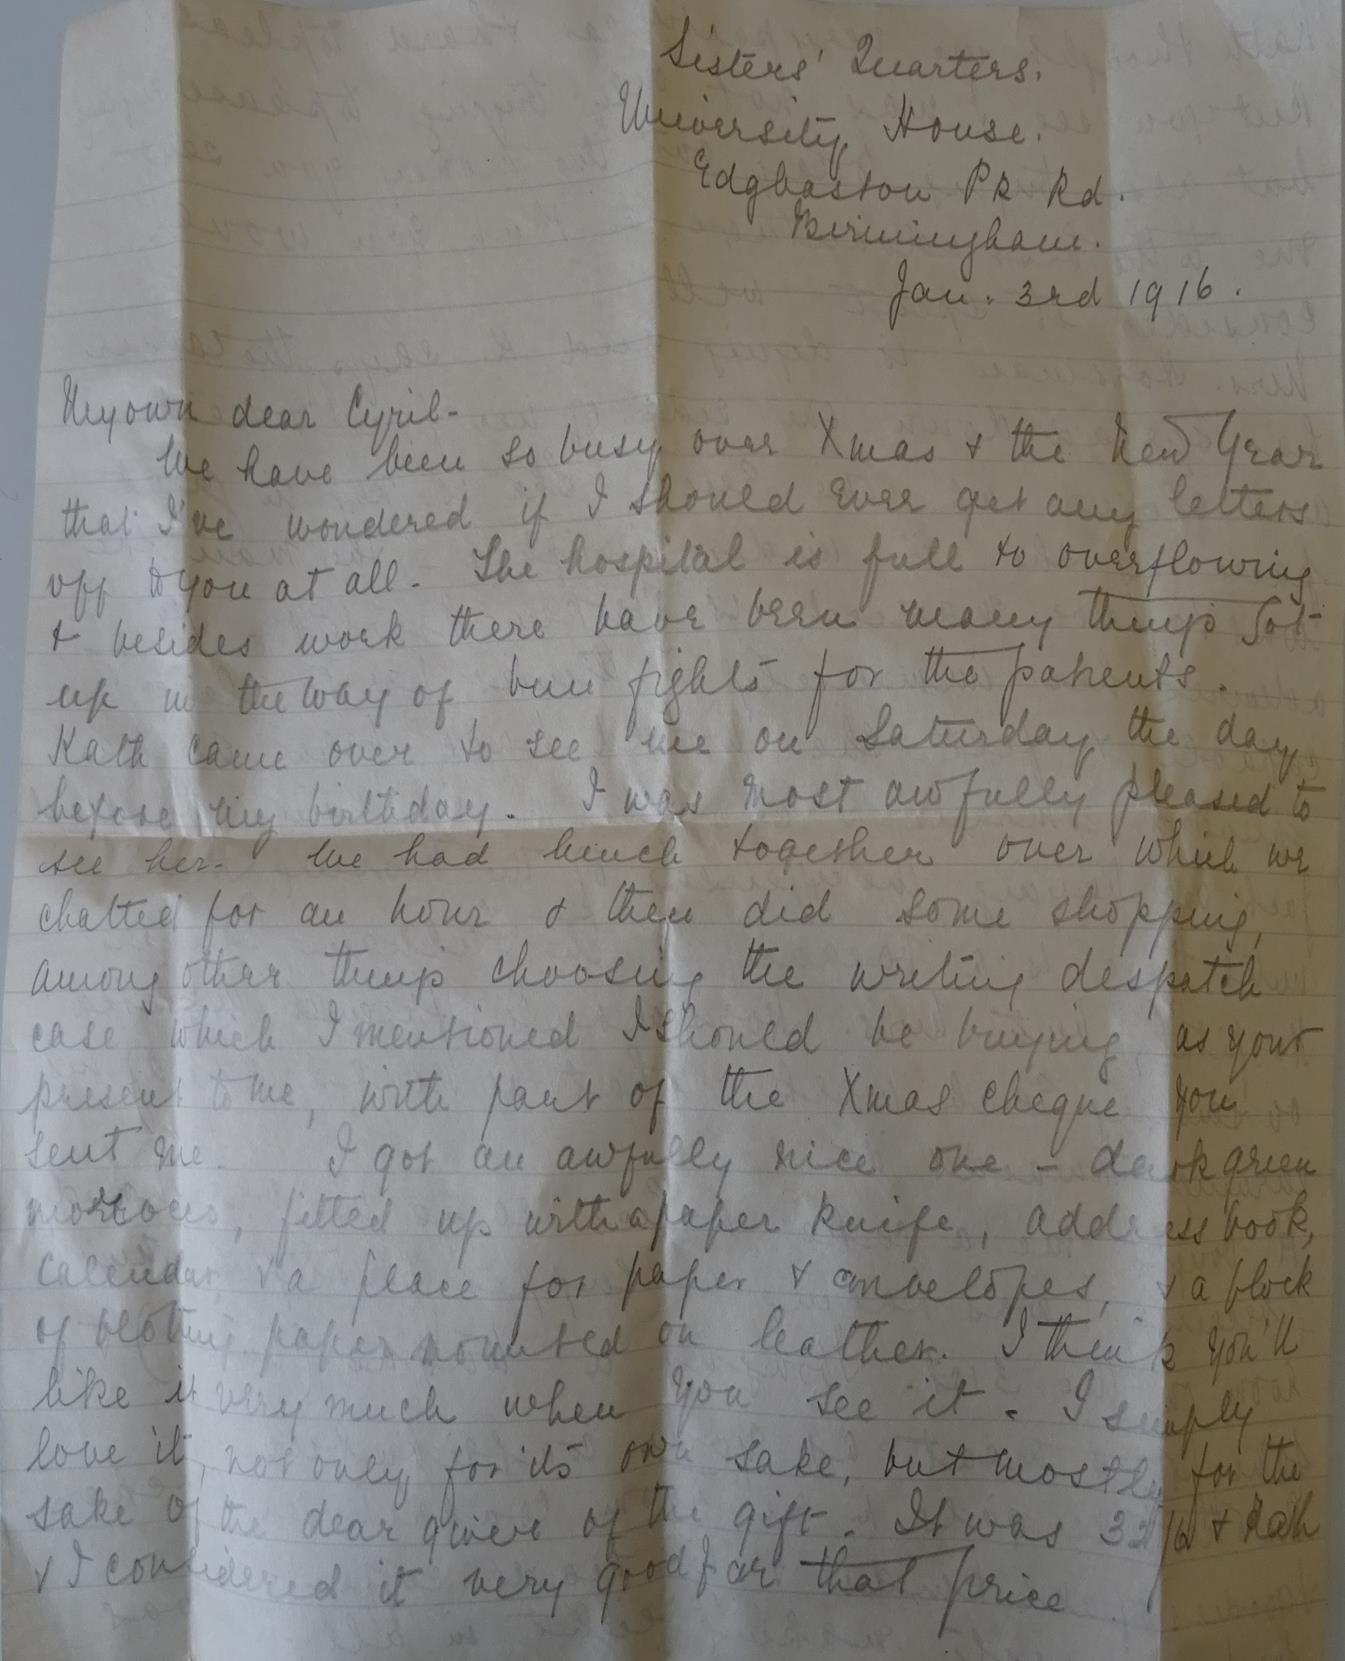 Sisters' Quarters.
University House.
Edgbaston Pk Rd.
Birmingham.
Jan. 3rd 1916.
My own dear Cyril-
We have been so busy over Xmas & the New Year
that I've wondered if I should ever get any letters
off to you at all. The hospital is full to overflowing
& besides work there have been many things got
up in the way of bun fights for the patients.
Kath came over to see me on Saturday, the day
before my birthday. I was most awfully pleased to
see her. We had lunch together over which we
chatted for an hour & then did some shopping,
among other things choosing the writing despatch
case which I mentioned I should be buying, as your
present to me, with part of the Xmas cheque you
sent me. I got an awfully nice one - dark green
morocco, fitted up with a paper knife, address book,
calendar, & a place for paper & envelopes, & a block
of blotting paper mounted on leather. I think you'll
like it very much when you see it. I simply
love it, not only for its own sake, but mostly for the
sake of the dear giver of the gift. It was 32/6 & Kath
& I considered it very good for that price